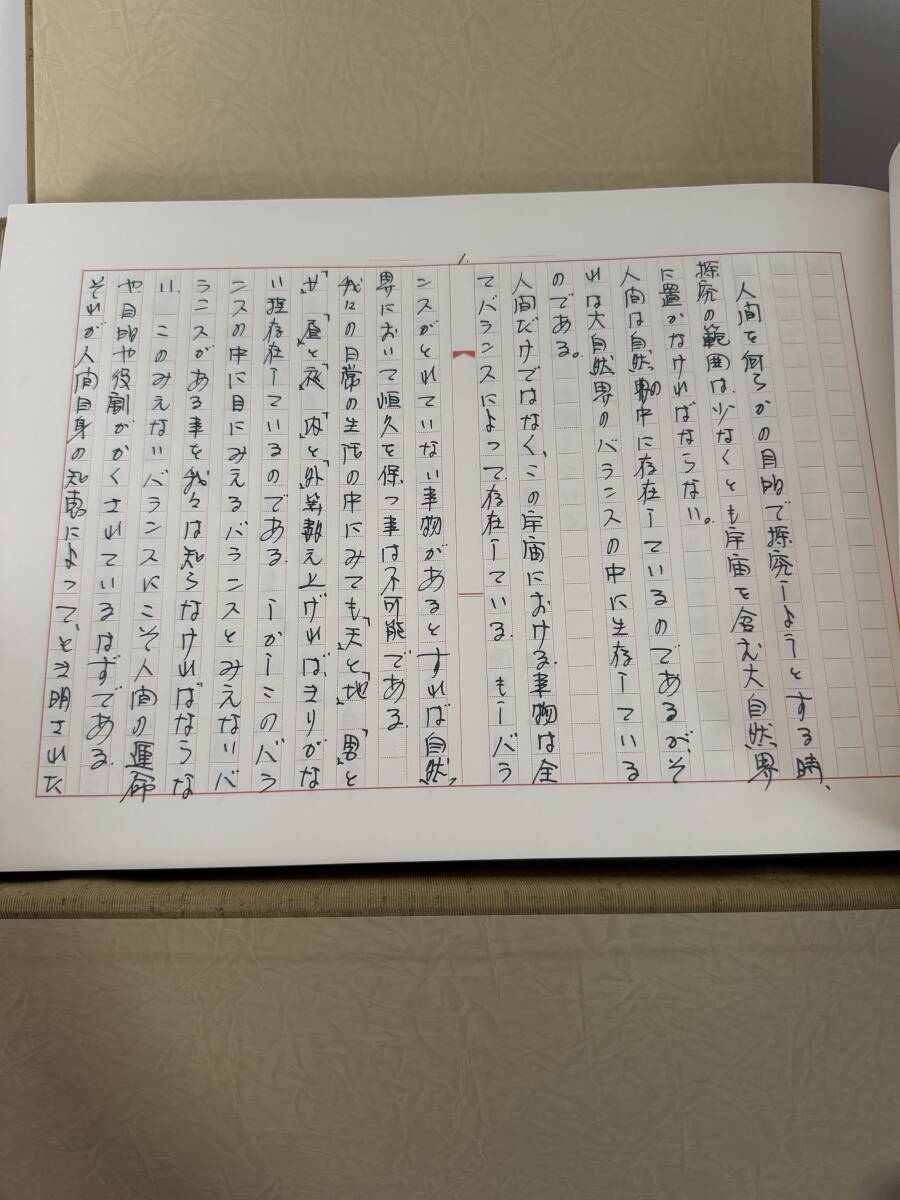 1.
人間を何らかの目的で探究しようとする時、
探究の範囲は、少なくとも宇宙を含む大自然界
に置かなければならない。
人間は自然界の中に存在しているのであるが、そ
れは大自然界のバランスの中に生存している
のである。
人間だけではなく、この宇宙における事物は全
てバランスによって存在している。もしバラ
ンスがとれていない事物があるとすれば自然
界において恒久を保つ事は不可能である。
我々の日常の生活の中にみても、「天」と「地」「男」と
「女」「昼」と「夜」「内」と「外」等数え上げればきりがな
い程存在しているのである。しかしこのバラ
ンスの中に目にみえるバランスとみえないバ
ランスがある事を我々は知らなければならな
い。このみえないバランスにこそ人間の運命
や目的や役割がかくされているはずである。
それが人間自身の知恵によって、とき明された